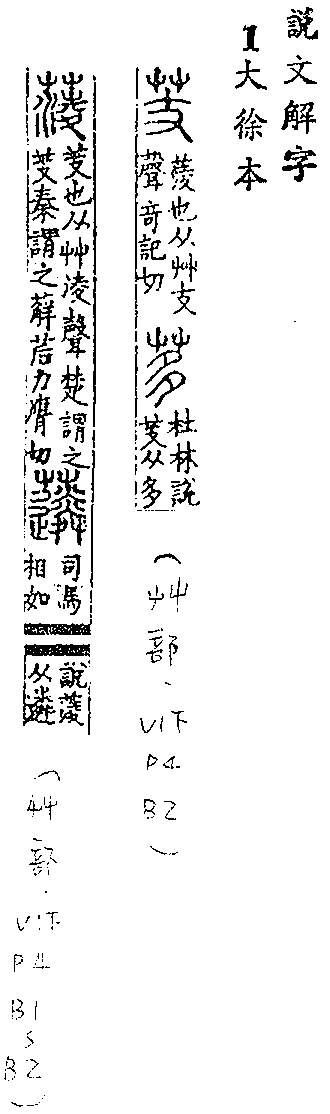 説文解字
1大徐本
芰
蔆也从艸支
聲奇記切
茤
杜林說
芰从多
(艸部.V1下P4B2)
蔆
芰也从艸淩聲楚謂之
芰秦謂之薢茩力膺切
司馬
相如
說蔆
从遴
(艸部.V1下P4B1~B2)